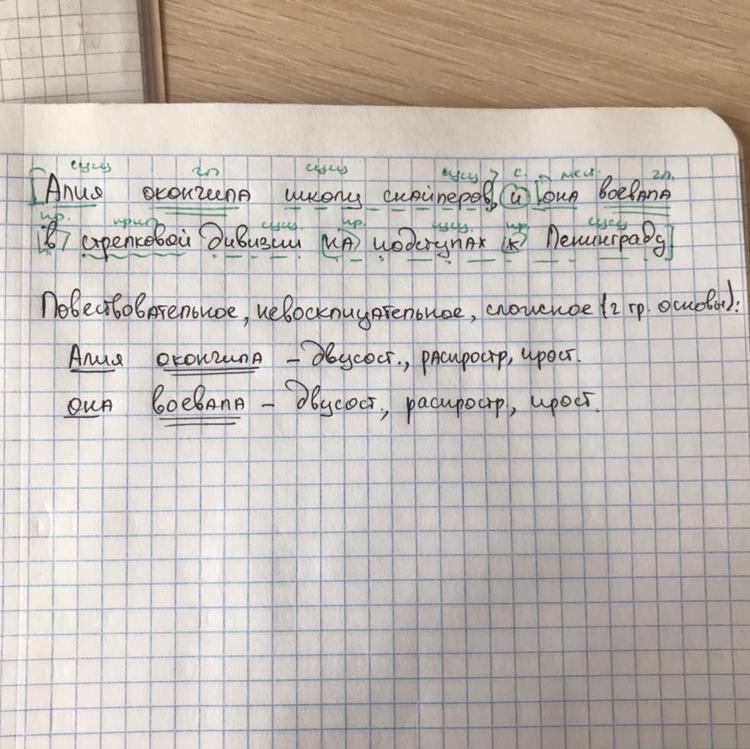 сущ гл сущ сущ с. мест. гл.
[Алия окончила школу снайперов], (и) [она воевала
пр. прил сущ. пр. сущ. пр сущ
(в) стрелковой дивизии (на) подступах (к) Ленинграду]
Повествовательное, невосклицательное, сложное (2 гр. основы):
Алия окончила – двусост., распростр, прост.
она воевала – двусост., распростр., прост.